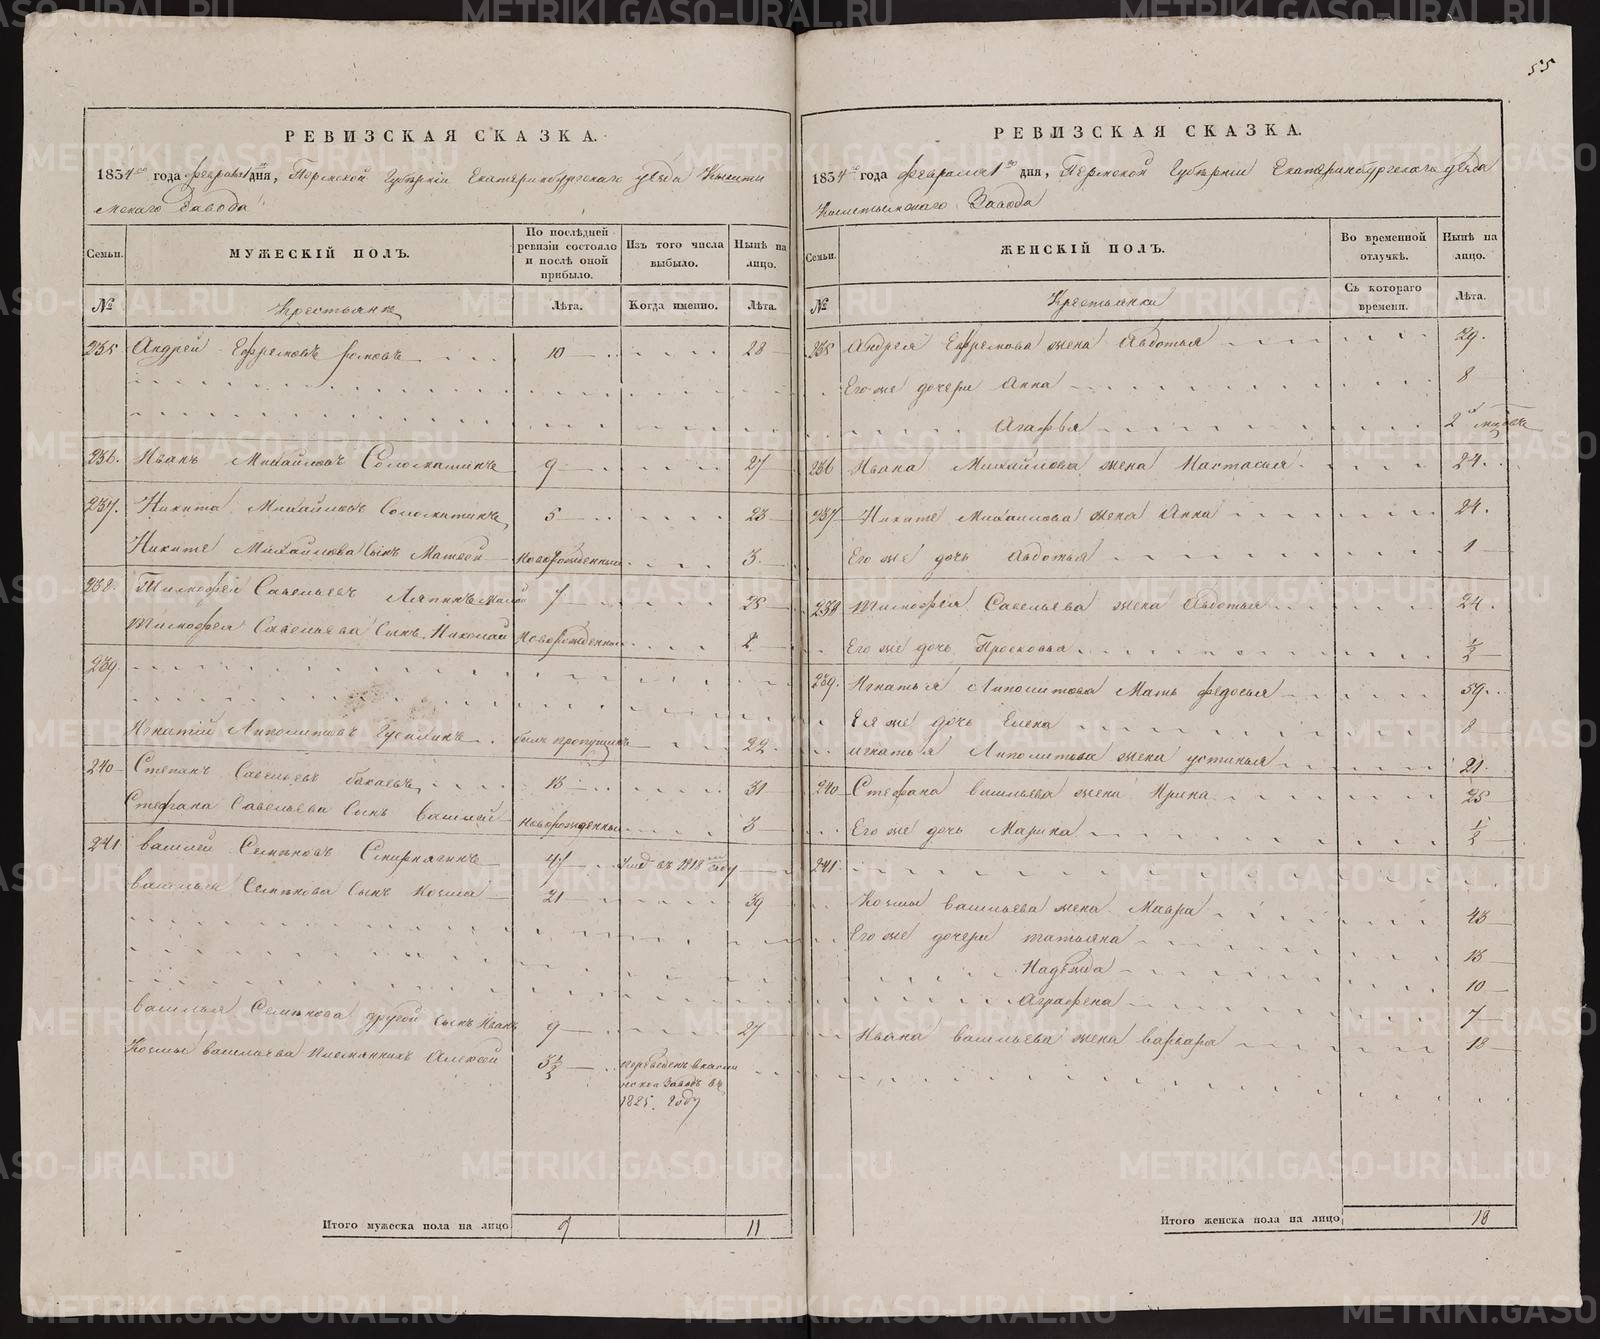 55
РЕВИЗСКАЯ СКАЗКА.
1834 года февраля 1 дня, Пермской Губернiи Екатеринбургскаго уезда Кышты
мскаго Завода
Семьи.
МУЖЕСКІЙ ПОЛЪ.
По послѣдней ревизіи состояло и послѣ оной прибыло.
Изъ того числа выбыло.
Нынѣ на лицо.
№
Крестьяне
Лѣта.
Когда именно.
Лѣта.
235 Андрей Ефремовъ 10 28
236. Иванъ Михайловъ 9 27
237. Никита Михайловъ 5 23
Никиты Михайлова сынъ Матвей новорожденный 3.
238. Тимофей Савельевъ Ляпинъ 7 25
Тимофея Савельева сынъ Николай новорожденный 2
239.
Игнатій Липолитовъ былъ пропущенъ 22
240 Степанъ Савельевъ 13 31
Стефана Савельева сынъ Василей новорожденный 3
241 Василей Семеновъ 47 Умр въ 1818 году
Василья Семенова сынъ Козма 21 39
Василья Семенова другой сынъ Иванъ 9 27
Козмы Васильева племянникъ Алексей 3½ переведенъ в
завод въ
1825. году
Итого мужеска пола на лицо 9 11
РЕВИЗСКАЯ СКАЗКА.
1834 года февраля 1 дня, Пермской Губернiи Екатеринбургскаго уезда
Кыштымскаго Завода
Семьи.
ЖЕНСКІЙ ПОЛЪ.
Во временной отлучкѣ.
Нынѣ на лицо.
№
Крестьянки
Съ котораго времени.
Лѣта.
235 Андрея Ефремова жена Авдотья 29.
Его же дочери Анна 8
Агафья 2
236 Ивана Михайлова жена Настасья 24.
237 Никиты Михайлова жена Анна 24.
Его же дочь Авдотья 1
238 Тимофея Савельева жена Авдотья 24.
Его же дочь Просковья ½
239. Игнатья Липолитова мать Федосья 59.
Ея же дочь Елена 8
Игнатья Липолитова жена Устинья 21.
240 Стефана Васильева жена Ирина 25
Его же дочь Марина ½
241.
Козмы Васильева жена Мавра 43
Его же дочери Татьяна 13
Надежда 10
Аграфена 7
Ивана Васильева жена Варвара 18
Итого женска пола на лицо 18
METRIKI.GASO-URAL.RU